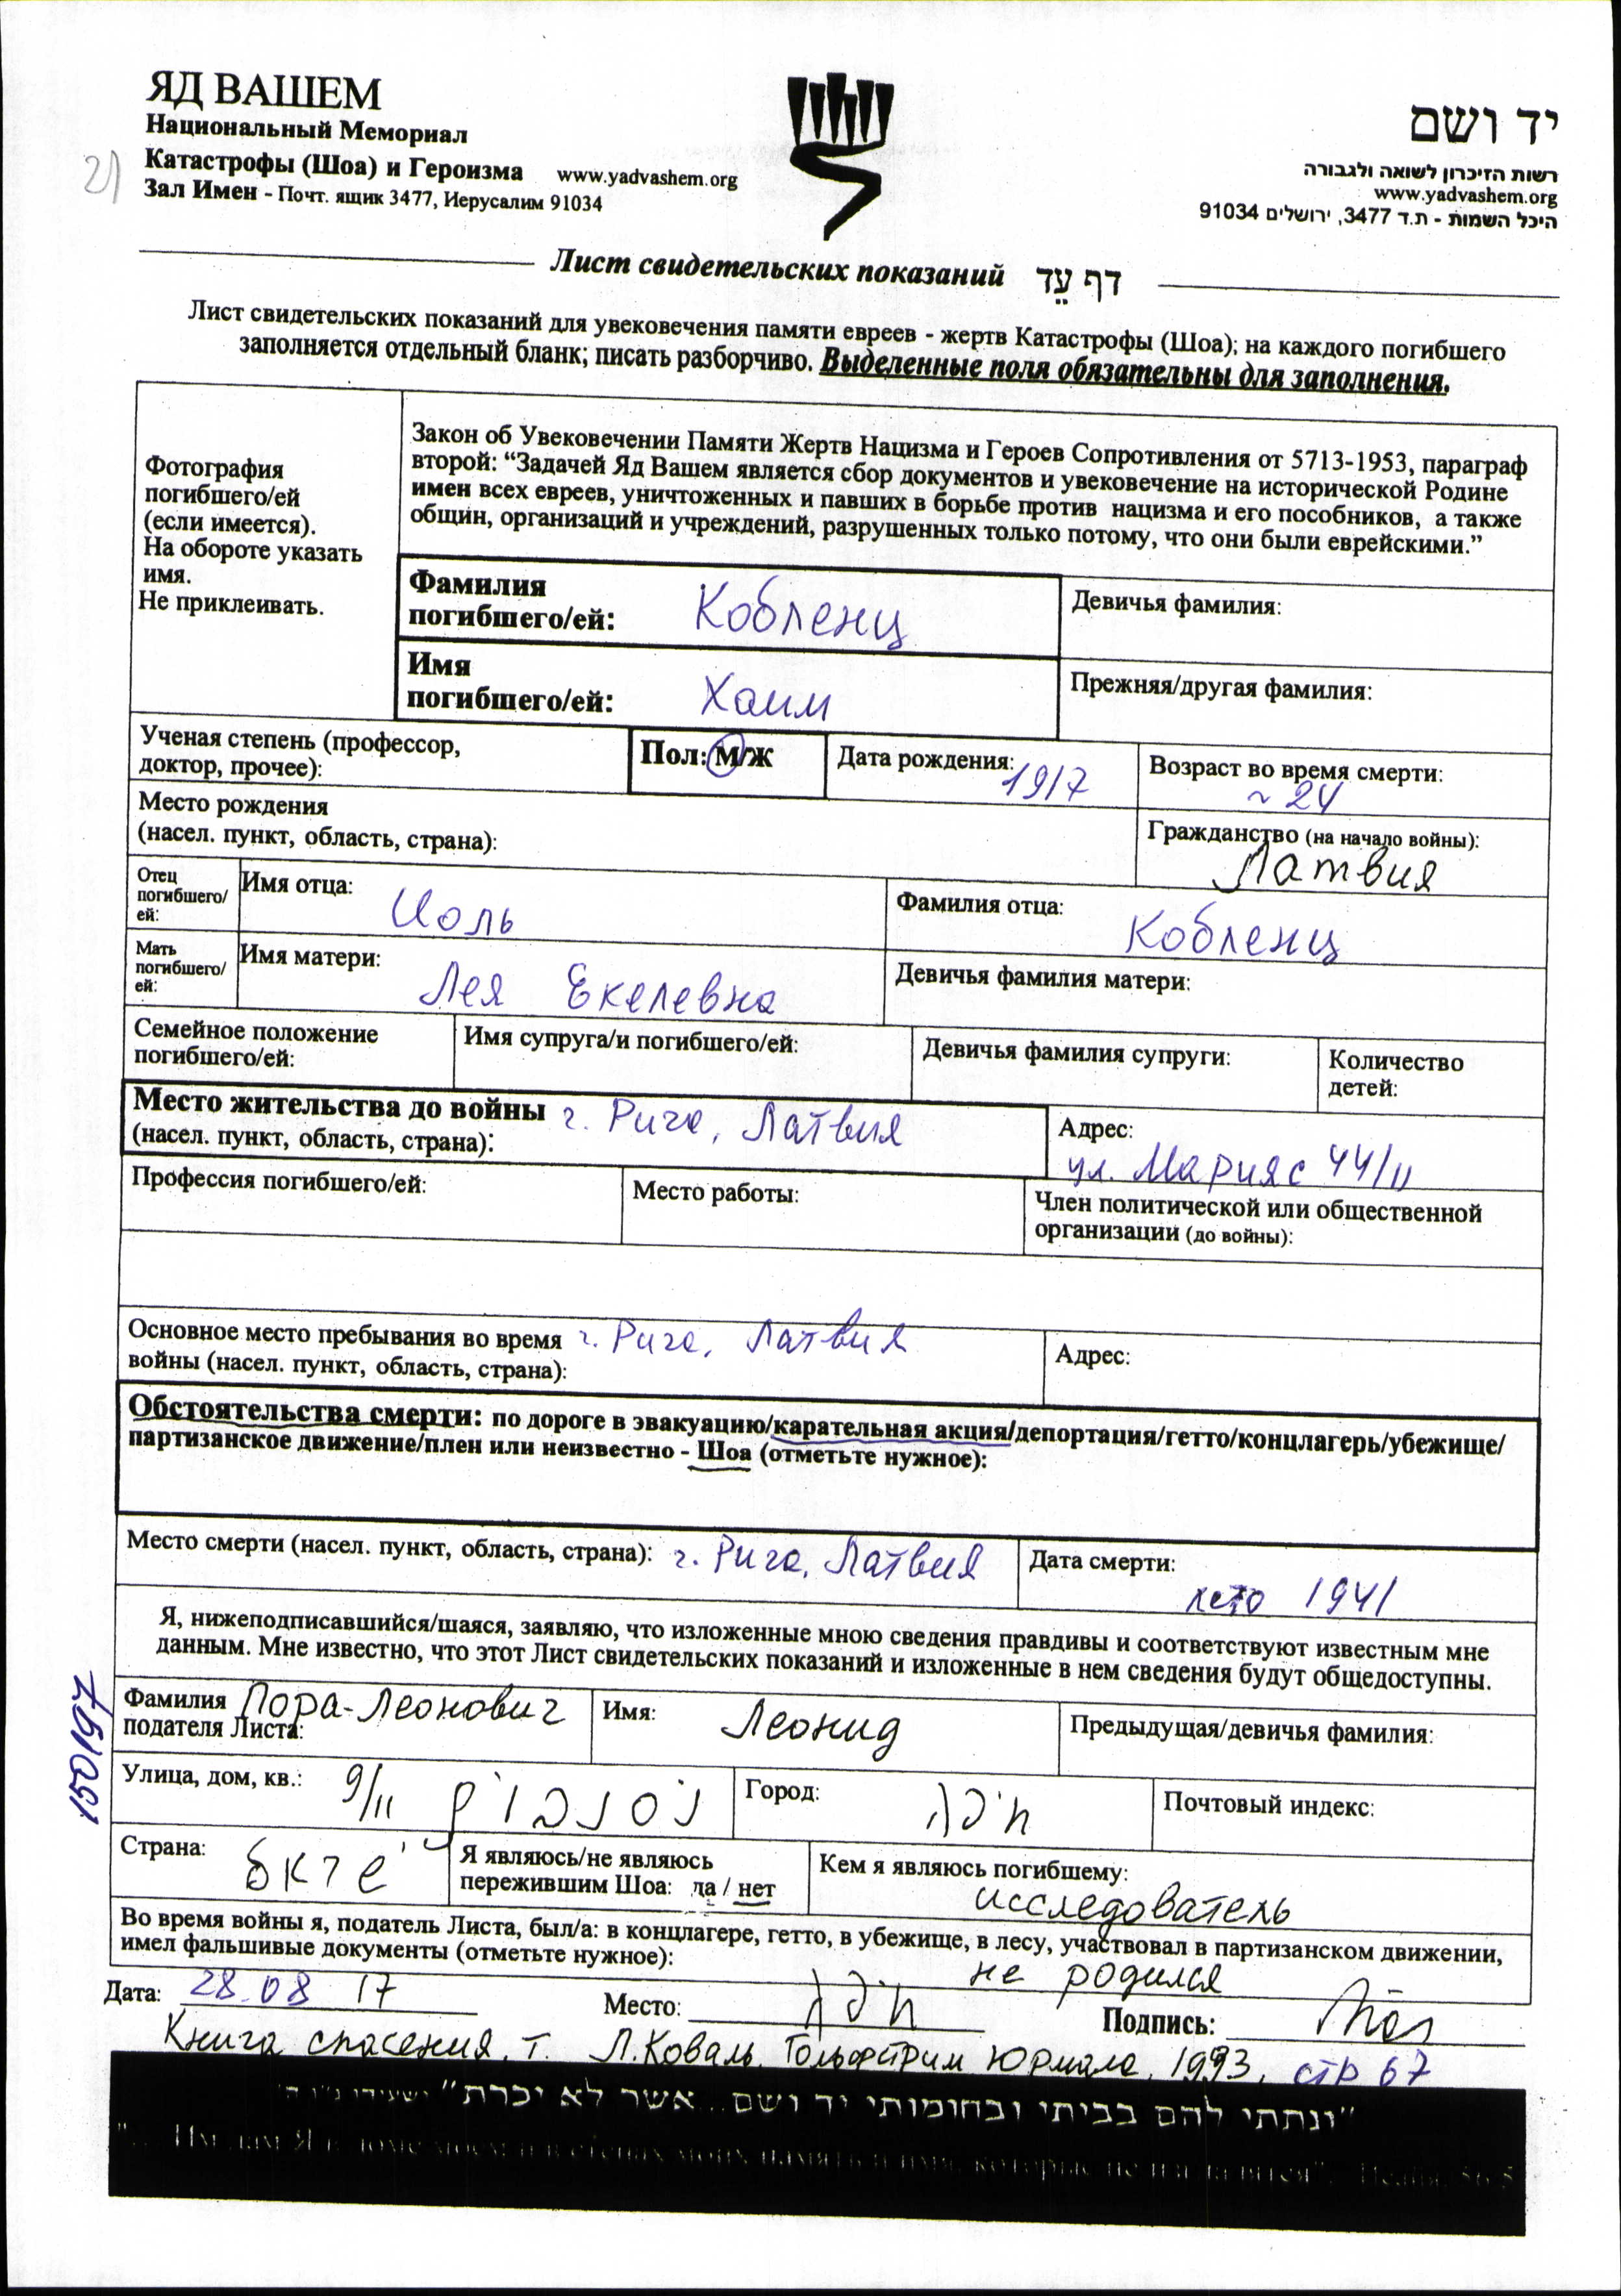 ЯД ВАШЕМ
Национальный Мемориал
Катастрофы (Шоа) и Героизма www.yadvashem.org
Зал Имен - Почт. ящик 3477, Иерусалим 91034
21)
יד ושם
רשות הזיכרון לשואה ולגבורה
www.yadvashem.org
היכל השמות - ת.ד 3477, ירושלים 91034
Лист свидетельских показаний דף עֵד
Лист свидетельских показаний для увековечения памяти евреев - жертв Катастрофы (Шоа); на каждого погибшего
заполняется отдельный бланк; писать разборчиво. Выделенные поля обязательны для заполнения.
Фотография
погибшего/ей
(если имеется).
На обороте указать
имя.
Не приклеивать.
Закон об Увековечении Памяти Жертв Нацизма и Героев Сопротивления от 5713-1953, параграф
второй: “Задачей Яд Вашем является сбор документов и увековечение на исторической Родине
имен всех евреев, уничтоженных и павших в борьбе против нацизма и его пособников, а также
общин, организаций и учреждений, разрушенных только потому, что они были еврейскими.”
Фамилия
погибшего/ей: Кобленц
Девичья фамилия:
Имя
погибшего/ей: Хаим
Прежняя/другая фамилия:
Ученая степень (профессор,
доктор, прочее):
Пол: М/Ж
Дата рождения: 1917
Возраст во время смерти:
~ 24
Место рождения
(насел. пункт, область, страна):
Гражданство (на начало войны):
Латвия
Отец
погибшего/
ей:
Имя отца: Иоль
Фамилия отца: Кобленц
Мать
погибшего/
ей:
Имя матери: Лея Екелевна
Девичья фамилия матери:
Семейное положение
погибшего/ей:
Имя супруга/и погибшего/ей:
Девичья фамилия супруги:
Количество
детей:
Место жительства до войны г. Рига, Латвия
(насел. пункт, область, страна):
Адрес:
ул. Марияс 44/11
Профессия погибшего/ей:
Место работы:
Член политической или общественной
организации (до войны):
Основное место пребывания во время г. Рига, Латвия
войны (насел. пункт, область, страна):
Адрес:
Обстоятельства смерти: по дороге в эвакуацию/карательная акция/депортация/гетто/концлагерь/убежище/
партизанское движение/плен или неизвестно - Шоа (отметьте нужное):
Место смерти (насел. пункт, область, страна): г. Рига, Латвия
Дата смерти:
лето 1941
Я, нижеподписавшийся/шаяся, заявляю, что изложенные мною сведения правдивы и соответствуют известным мне
данным. Мне известно, что этот Лист свидетельских показаний и изложенные в нем сведения будут общедоступны.
150197
Фамилия Пора-Леонович
подателя Листа:
Имя: Леонид
Предыдущая/девичья фамилия:
Улица, дом, кв.: 9/11
Город: חיפה
Почтовый индекс:
Страна:
Я являюсь/не являюсь
пережившим Шоа: да / нет
Кем я являюсь погибшему:
исследователь
Во время войны я, податель Листа, был/а: в концлагере, гетто, в убежище, в лесу, участвовал в партизанском движении,
имел фальшивые документы (отметьте нужное): не родился
Дата: 28.08 17
Место: חיפה
Подпись:
Книга спасения, т. Л.Коваль. Гольфстрим Юрмала, 1993, стр 67
"ונתתי להם בביתי ובחומותי יד ושם... אשר לא יכרת" ישעיהו נ"ו ה'